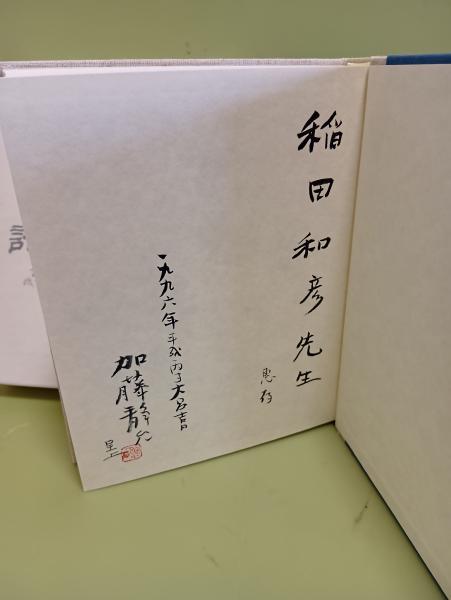 稲田和彦先生
恵存
一九九六年平成丙子大呂吉日
加藤静允
呈上